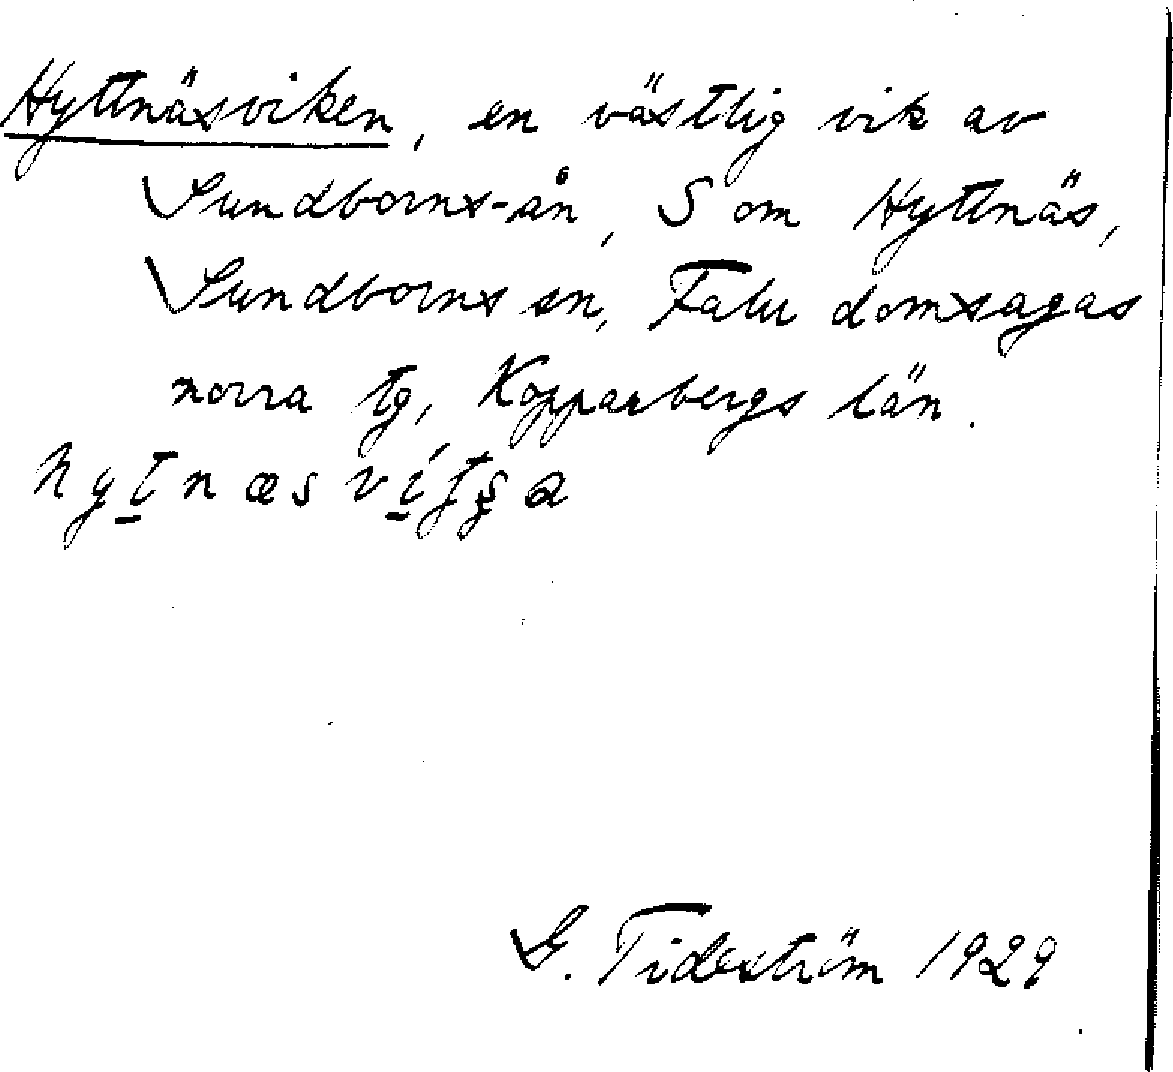 Hyttnäsviken, en västlig vik av
Sundborns-ån, S om Hyttnäs,
Sundborns sn, Falu domsagas
norra tg, Kopparbergs län.
G. Tideström 1929